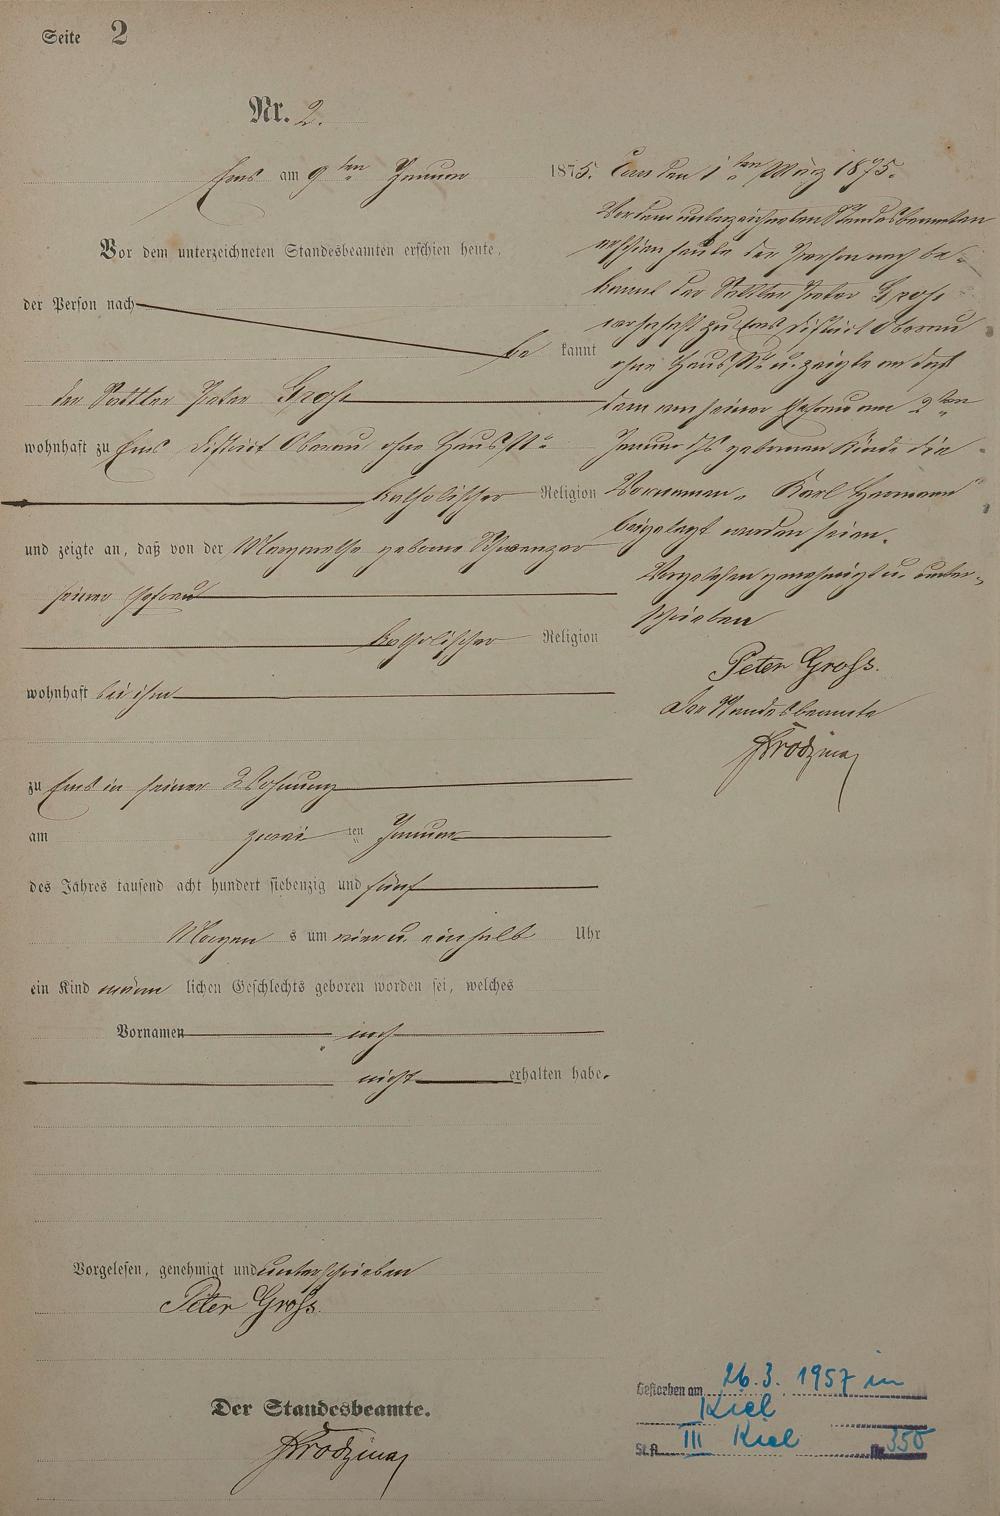 Seite 2
Nr. 2.
Ems am 9ten Januar 1875.
Vor dem unterzeichneten Standesbeamten erschien heute,
der Person nach
be kannt
der Sattler Peter Groß
wohnhaft zu Ems District Oberau ohne Haus No
katholischer Religion
und zeigte an, daß von der Margarethe geborne Schwenzer
seiner Ehefrau
katholischer Religion
wohnhaft bei ihm
zu Ems in seiner Wohnung
am zwei ten Januar
des Jahres tausend acht hundert siebenzig und fünf
Morgen s um vier u. einhalb Uhr
ein Kind männ lichen Geschlechts geboren worden sei, welches
Vornamen noch
nicht erhalten habe.
Vorgelesen, genehmigt und unterschrieben
Peter Groß.
Der Standesbeamte.
Ems den 1ten März 1875.
Vor dem unterzeichneten Standesbeamten
erschien heute der Person nach be-
kannt der Sattler Peter Groß
wohnhaft zu Ems District Oberau
ohne Haus No u. zeigte an daß
dem von seiner Ehefrau am 2ten
Januar ds gebornen Kinde die
Vornamen „Karl Hermann“
beigelegt worden seien.
Vorgelesen genehmigt u. unter-
schrieben
Peter Groß.
Der Standesbeamte
Gestorben am 26.3.1957 in
Kiel
St.A. III Kiel Nr. 350